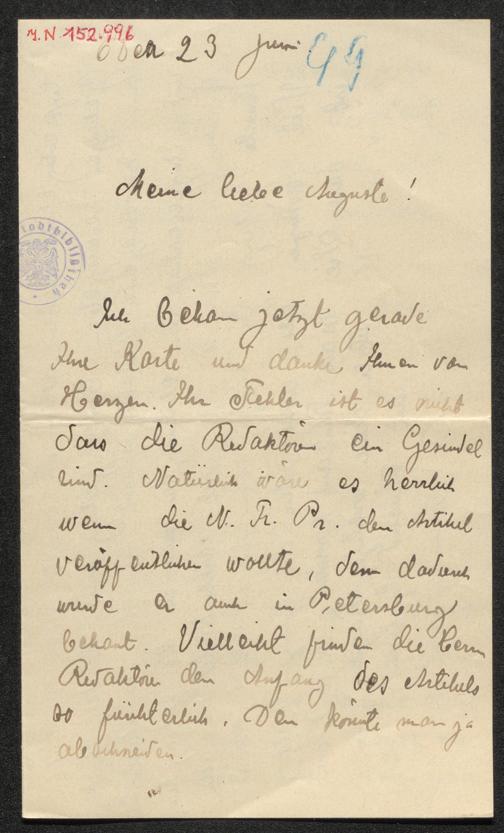 J.N. 152.996
den 23 Juni 99
Meine liebe Auguste!
Stadtbibliothek
Ich bekam jetzt gerade
Ihre Karte und danke Ihnen von
Herzen. Ihr Fehler ist es nicht
dass die Redaktöre ein Gesindel
sind. Natürlich wäre es herrlich
wenn die N. Fr. Pr. den Artikel
veröffentlichen wollte, denn dadurch
wurde er auch in Petersburg
bekant. Vielleicht finden die Herrn
Redaktöre den Anfang des Artikels
so fürchterlich. Den könnte man ja
abschneiden.